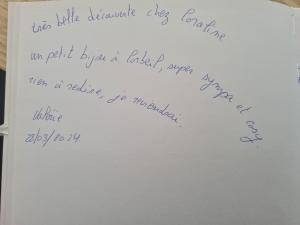 très belle découverte chez Coraline
un petit bijou à Corbeil, super sympa et cosy.
rien à redire, je reviendrai.
Valérie
22/03/2024.